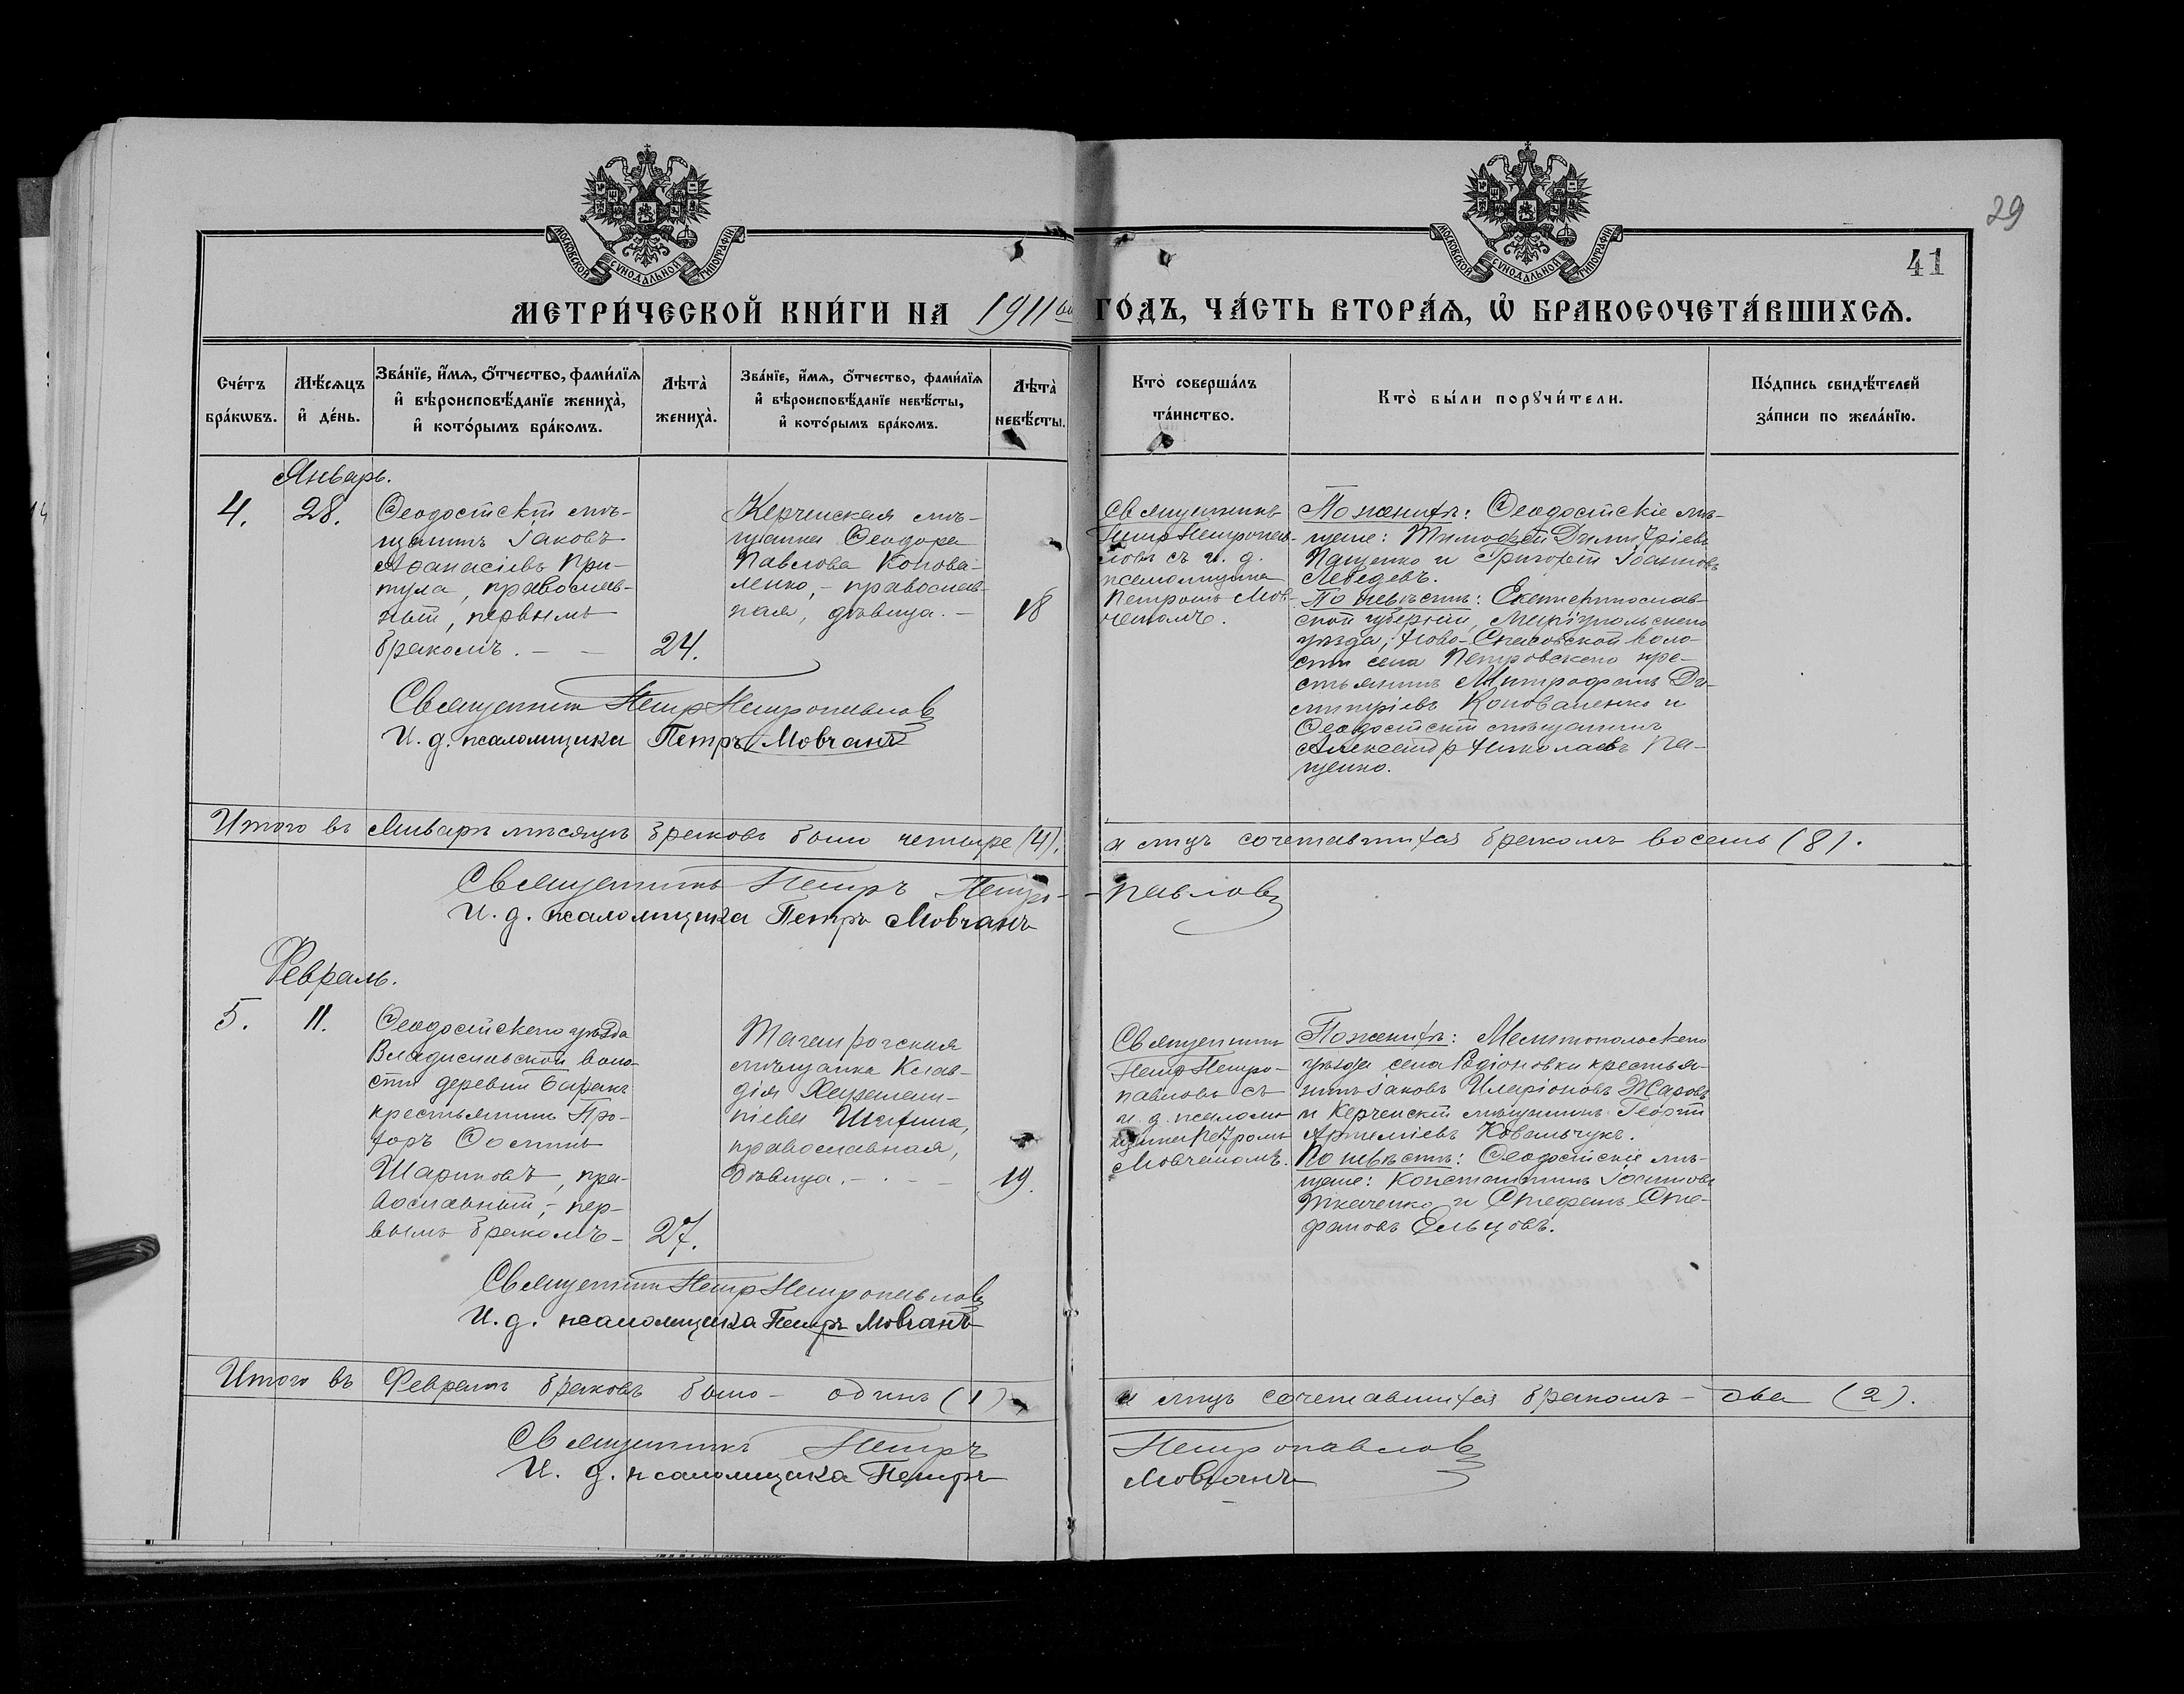 29
41
МОСКОВСКОЙ СѴНОДАЛЬНОЙ ТИПОГРАФІИ
МОСКОВСКОЙ СѴНОДАЛЬНОЙ ТИПОГРАФІИ
МЕТРИ́ЧЕСКОЙ КНИ́ГИ НА 1911ый ГО́ДЪ, ЧА́СТЬ ВТОРА́Ѧ, Ѡ҆ БРАКОСОЧЕТА́ВШИХСѦ.
Сче́тъ
бра́кѡвъ.
Мѣ́сѧцъ
и҆ де́нь.
Зва́нїе, и҆́мѧ, ѻ҆́тчество, фами́лїѧ
и҆ вѣроисповѣ́данїе жениха̀,
и҆ кото́рымъ бра́комъ.
Лѣта̀
жениха̀.
Зва́нїе, и҆́мѧ, ѻ҆́тчество, фами́лїѧ
и҆ вѣроисповѣ́данїе невѣ́сты,
и҆ кото́рымъ бра́комъ.
Лѣта̀
невѣ́сты.
Кто̀ соверша́лъ
та́инство.
Кто̀ бы́ли порꙋчи́тели.
По́дпись свидѣ́телей
за́писи по жела́нїю.
Январь.
4.
28.
Ѳеодосійскій мѣ-
щанинъ Іаковъ
Аѳанасіевъ При-
тула, православ-
ный, первымъ
бракомъ. – –
24.
Керченская мѣ-
щанка Ѳеодора
Павлова Конова-
ленко, – православ-
ная, дѣвица. –
18
Священникъ
Петръ Петропав-
ловъ съ и. д.
псаломщика
Петромъ Мов-
чаномъ.
По женихѣ: Ѳеодосійскіе мѣ-
щане: Тимоѳей Димитріевъ
Пащенко и Григорій Іоанновъ
Лебедевъ.
По невѣстѣ: Екатеринослав-
ской губерніи, Маріупольскаго
уѣзда, Ново-Спасовской воло-
сти села Петровскаго кре-
стьянинъ Митрофанъ Ди-
митріевъ Коноваленко и
Ѳеодосійскій мѣщанинъ
Александр Николаевъ Па-
щенко.
Священник Петр Петропавлов
И. д. псаломщика Петръ Мовчанъ
Итого въ Январѣ мѣсяцѣ браковъ было четыре (4).
а лицъ сочетавшихся бракомъ восемь (8).
Священникъ Петръ Петро-
-павлов
И. д. псаломщика Петръ Мовчанъ
Февраль.
5.
11.
Ѳеодосійскаго уѣзда
Владиславской воло-
сти деревни Баракъ
крестьянинъ Про-
хоръ
Шариповъ, пра-
вославный, – пер-
вымъ бракомъ –
27.
Таганрогская
мѣщанка Клав-
дія
православная,
дѣвица. – . – –
19.
Священникъ
Петр Петро-
павловъ съ
и. д. псалом-
щика Петромъ
Мовчаномъ.
По женихѣ: Мелитопольскаго
уѣзда села Родіоновки крестья-
нинъ Іаковъ Иларіоновъ Жаровъ
и Керченскій мѣщанинъ Георгій
Артеміевъ Ковальчукъ.
По невѣстѣ: Ѳеодосійскіе мѣ-
щане: Константинъ Іоанновъ
Ткаченко и Стефанъ Сте-
фановъ Ельцовъ.
Священник Петр Петропавлов
И. д. псаломщика Петръ Мовчанъ
Итого въ Февралѣ браковъ было – одинъ (1)
а лицъ сочетавшихся бракомъ – два (2).
Священникъ Петръ
Петропавлов
И. д. псаломщика Петръ
Мовчанъ